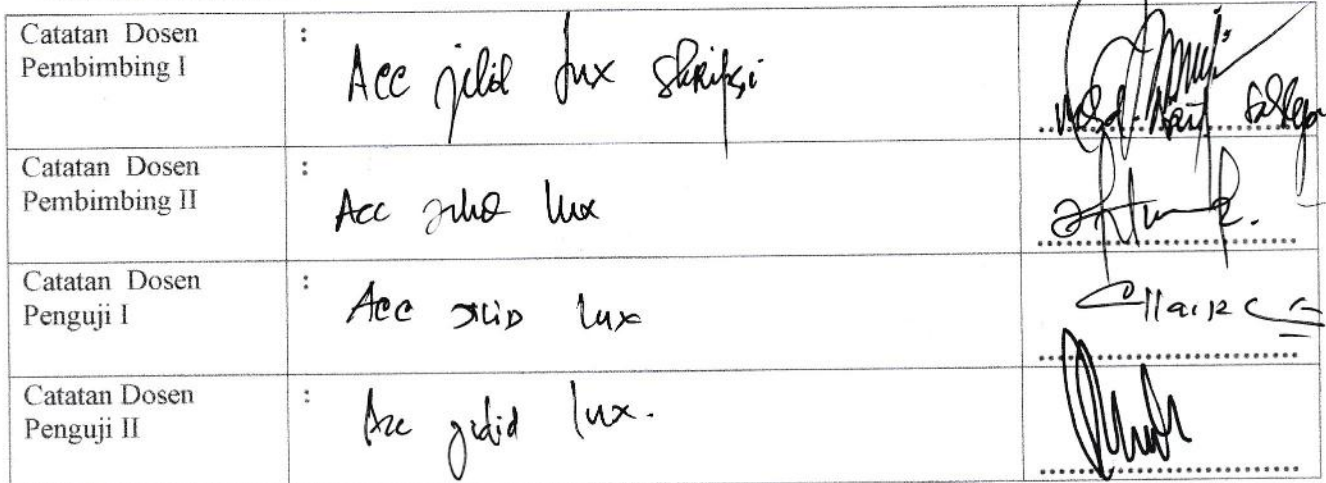 Catatan Dosen
Pembimbing I
: Acc jilid lux skripsi
Catatan Dosen
Pembimbing II
: Acc jilid lux
Catatan Dosen
Penguji I
: Acc jilid lux
Catatan Dosen
Penguji II
: Acc jilid lux.